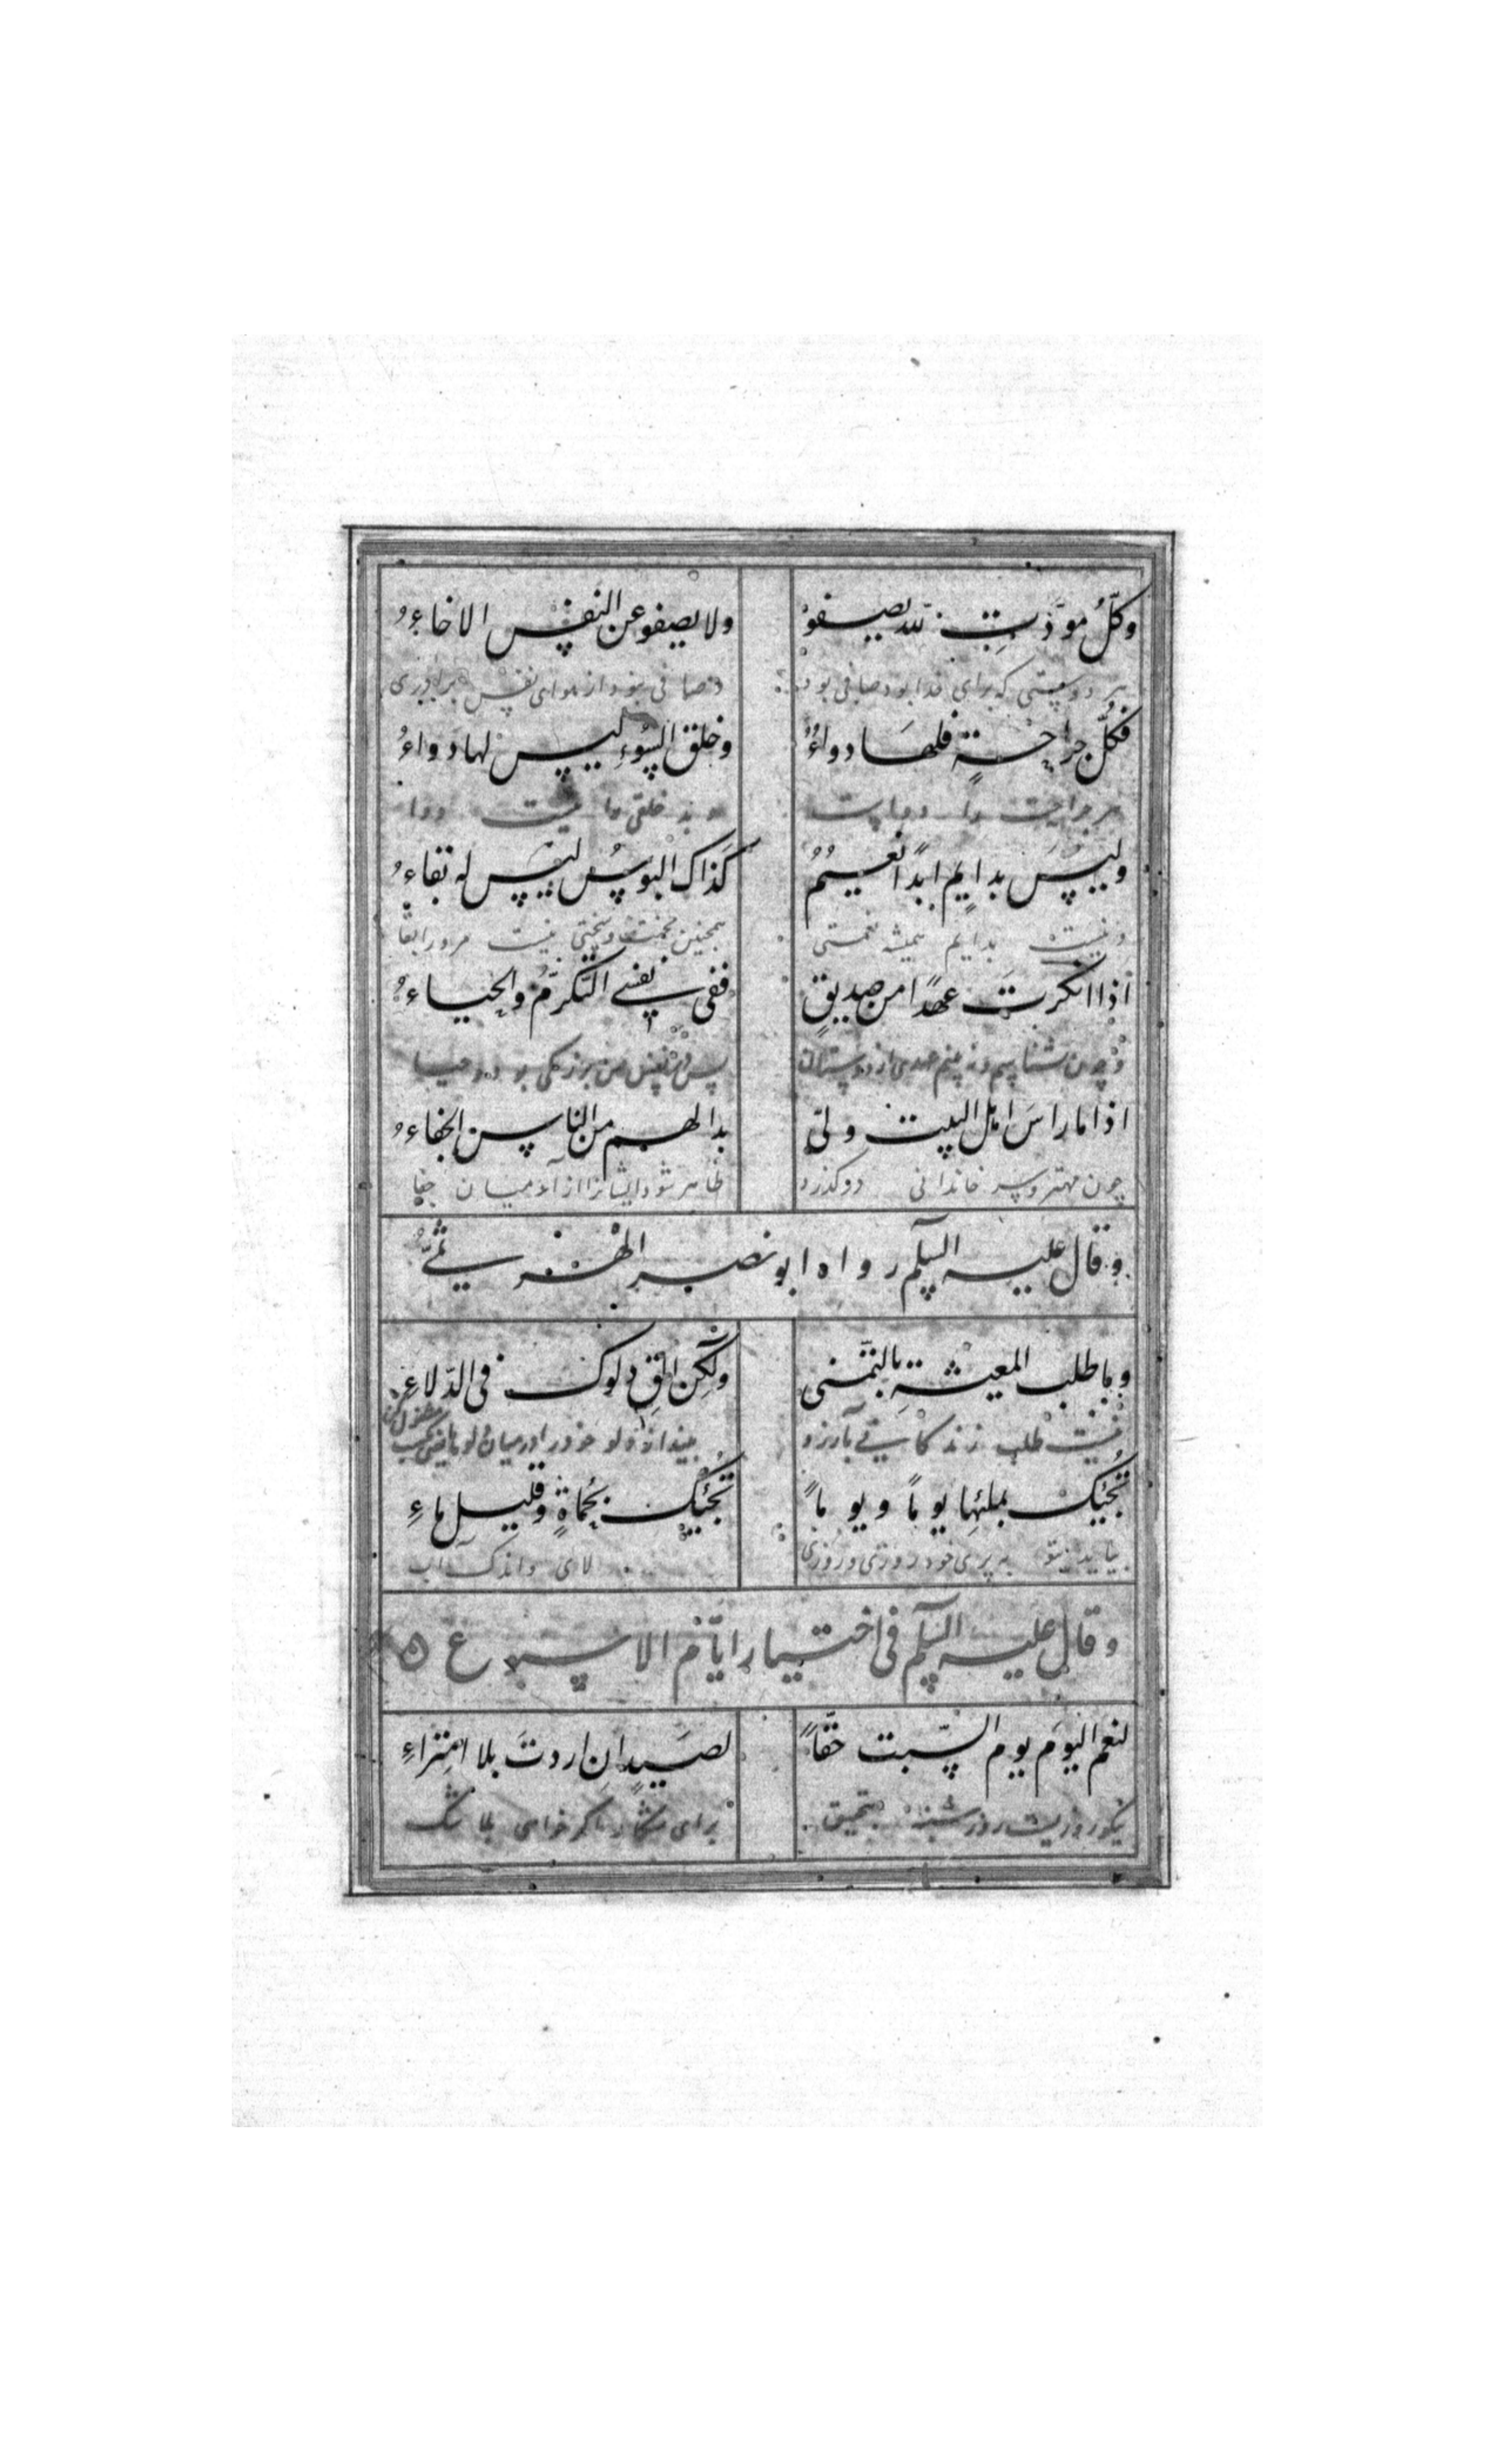 وكلُّ مودّتٍ لله يصفو ولا يصفو عن النفس الاخاءُ
هر دوستی که برای خدا بود صافی بود نصافی نبود از هوای نفس برادری
فكلّ جراحةٍ فلها دواءٌ وخلق السّوءِ ليس لها دواءُ
هر جراحت را دواست و بد خلقی را نیست دوا
وليس بدايمٍ ابداً نعيمٌ كذاك البوسُ ليس له بقاءُ
و نیست بدایم همیشه نعمتی همچنین محنت و سختی نیست مرورا بقا
اذا انكرتَ عهدًا من صديقٍ ففى نفسى التّكرّمُ والحياءُ
چون نشناسم و نه بینم عهدی از دوستان پس در نفس من بزرکی بود و حیا
اذا ما راسَ اهل البيت ولّى بدا لهم من الناس الجفاءُ
چون مهتر و سر خاندانی درکذرد ظاهر شود ایشانرا از آدمیان جفا
و قال عليه السلم رواه ابو نصر
و ما طلب المعيشةِ بالتّمنّى ولكن القِ دلوك فى الدّلاءِ
نیست طلب زندکانی بآرزو بینداز دلو خود را در میان دلوها
تجئك بملئها يوماً و يوماً تجئك بحماةٍ وقليل ماءِ
بیاید بتو به پری خود روزی و روزی لای و اندک آب
و قال عليه السلم فى اختيار ايّام الاسبوع
لنعم اليومَ يوم السّبت حقّاً لصيدٍ ان اردتَ بلا امتراءِ
نیکو روزیست روز شنبه بتحقیق برای شکار اکر خواهی بلا شک